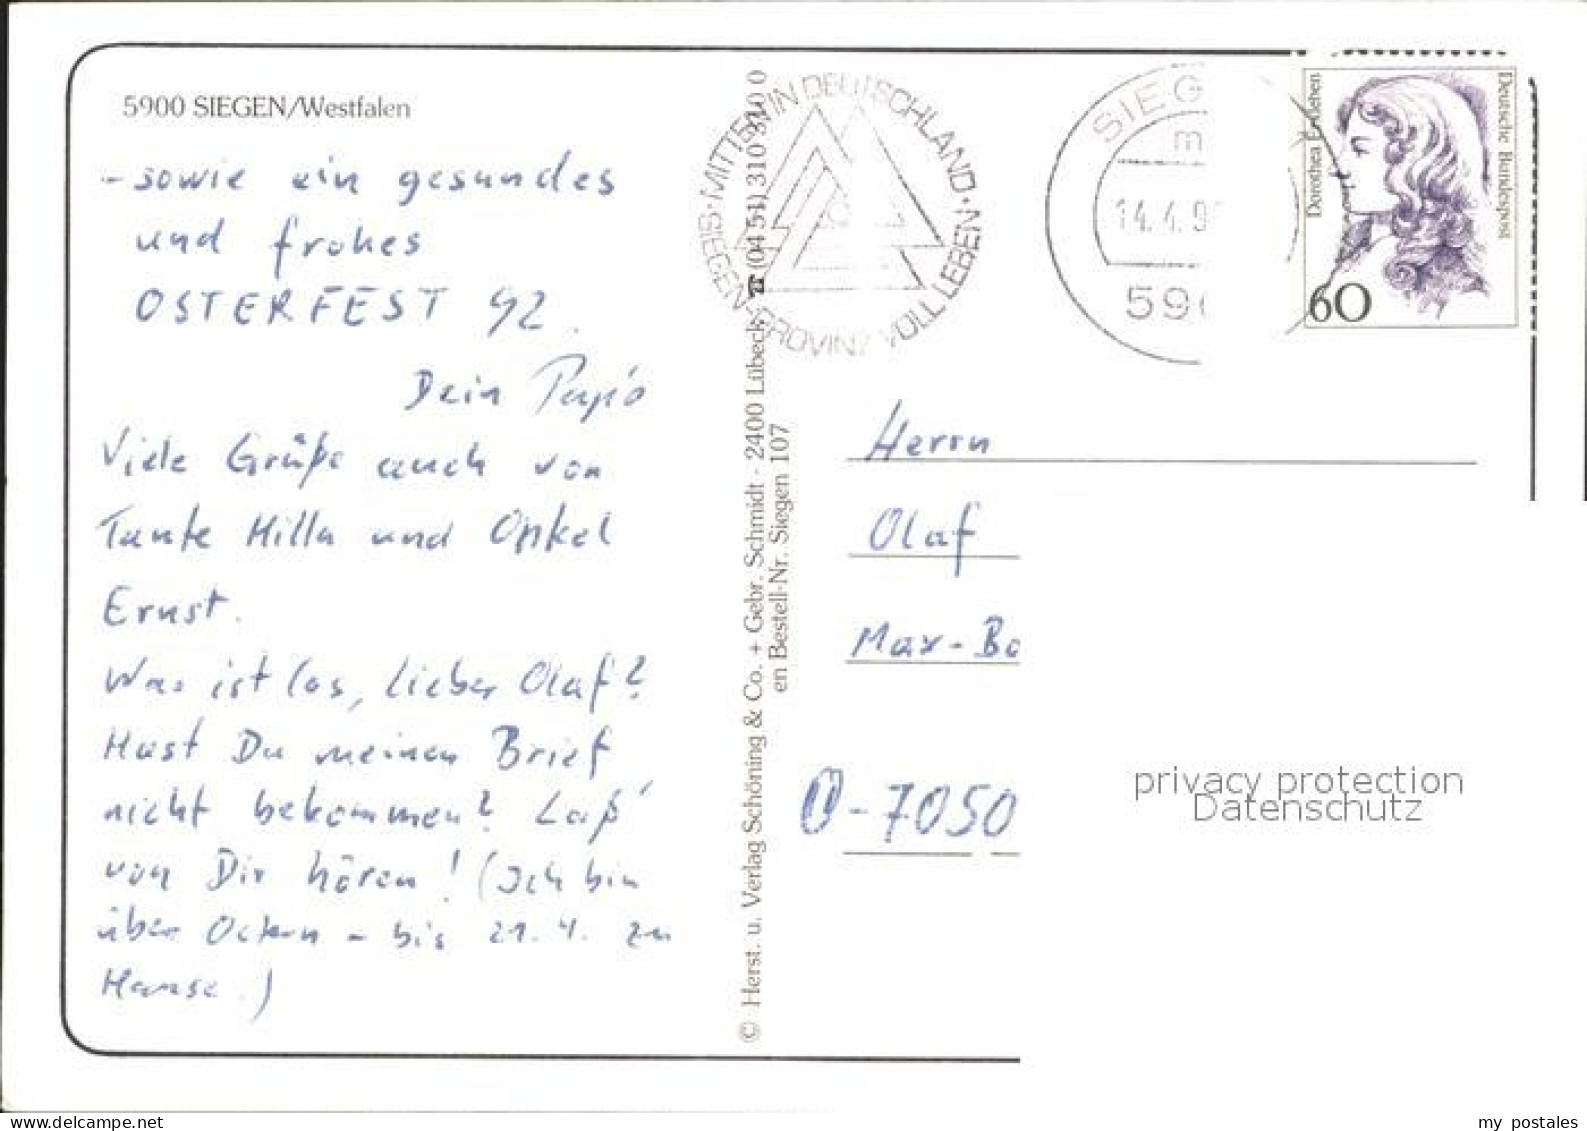 5900 SIEGEN/Westfalen
- sowie ein gesundes
und frohes
OSTERFEST 92.
Dein Papa
Viele Grüße auch von
Tante Milla und Onkel
Ernst.
Was ist los, lieber Olaf?
Hast Du meinen Brief
nicht bekommen? Laß
von Dir hören! (Ich bin
über Ostern - bis 21. 4. zu
Hause.)
© Herst. u. Verlag Schöning & Co. + Gebr. Schmidt - 2400 Lübeck ☎ (0451) 310 310 0
en Bestell-Nr. Siegen 107
SIEGEN-PROVINZ VOLL LEBEN · MITTEN IN DEUTSCHLAND ·
SIEG
m
14.4.9
590
Dorothea Erxleben
Deutsche Bundespost
60
Herrn
Olaf
Max-Bo
O-7050
privacy protection
Datenschutz
delcampe.net
my_postales